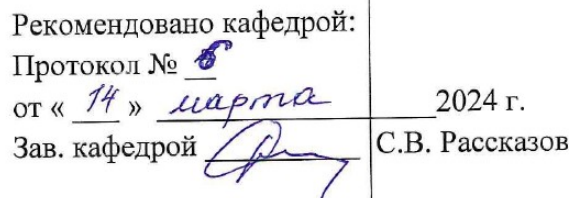 Рекомендовано кафедрой:
Протокол №
от « 14 » марта 2024 г.
Зав. кафедрой С.В. Рассказов